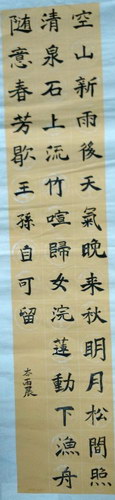 空山新雨後天氣晚来秋明月松間照
清泉石上流竹喧歸女浣蓮動下漁舟
随意春芳歇王孫自可留